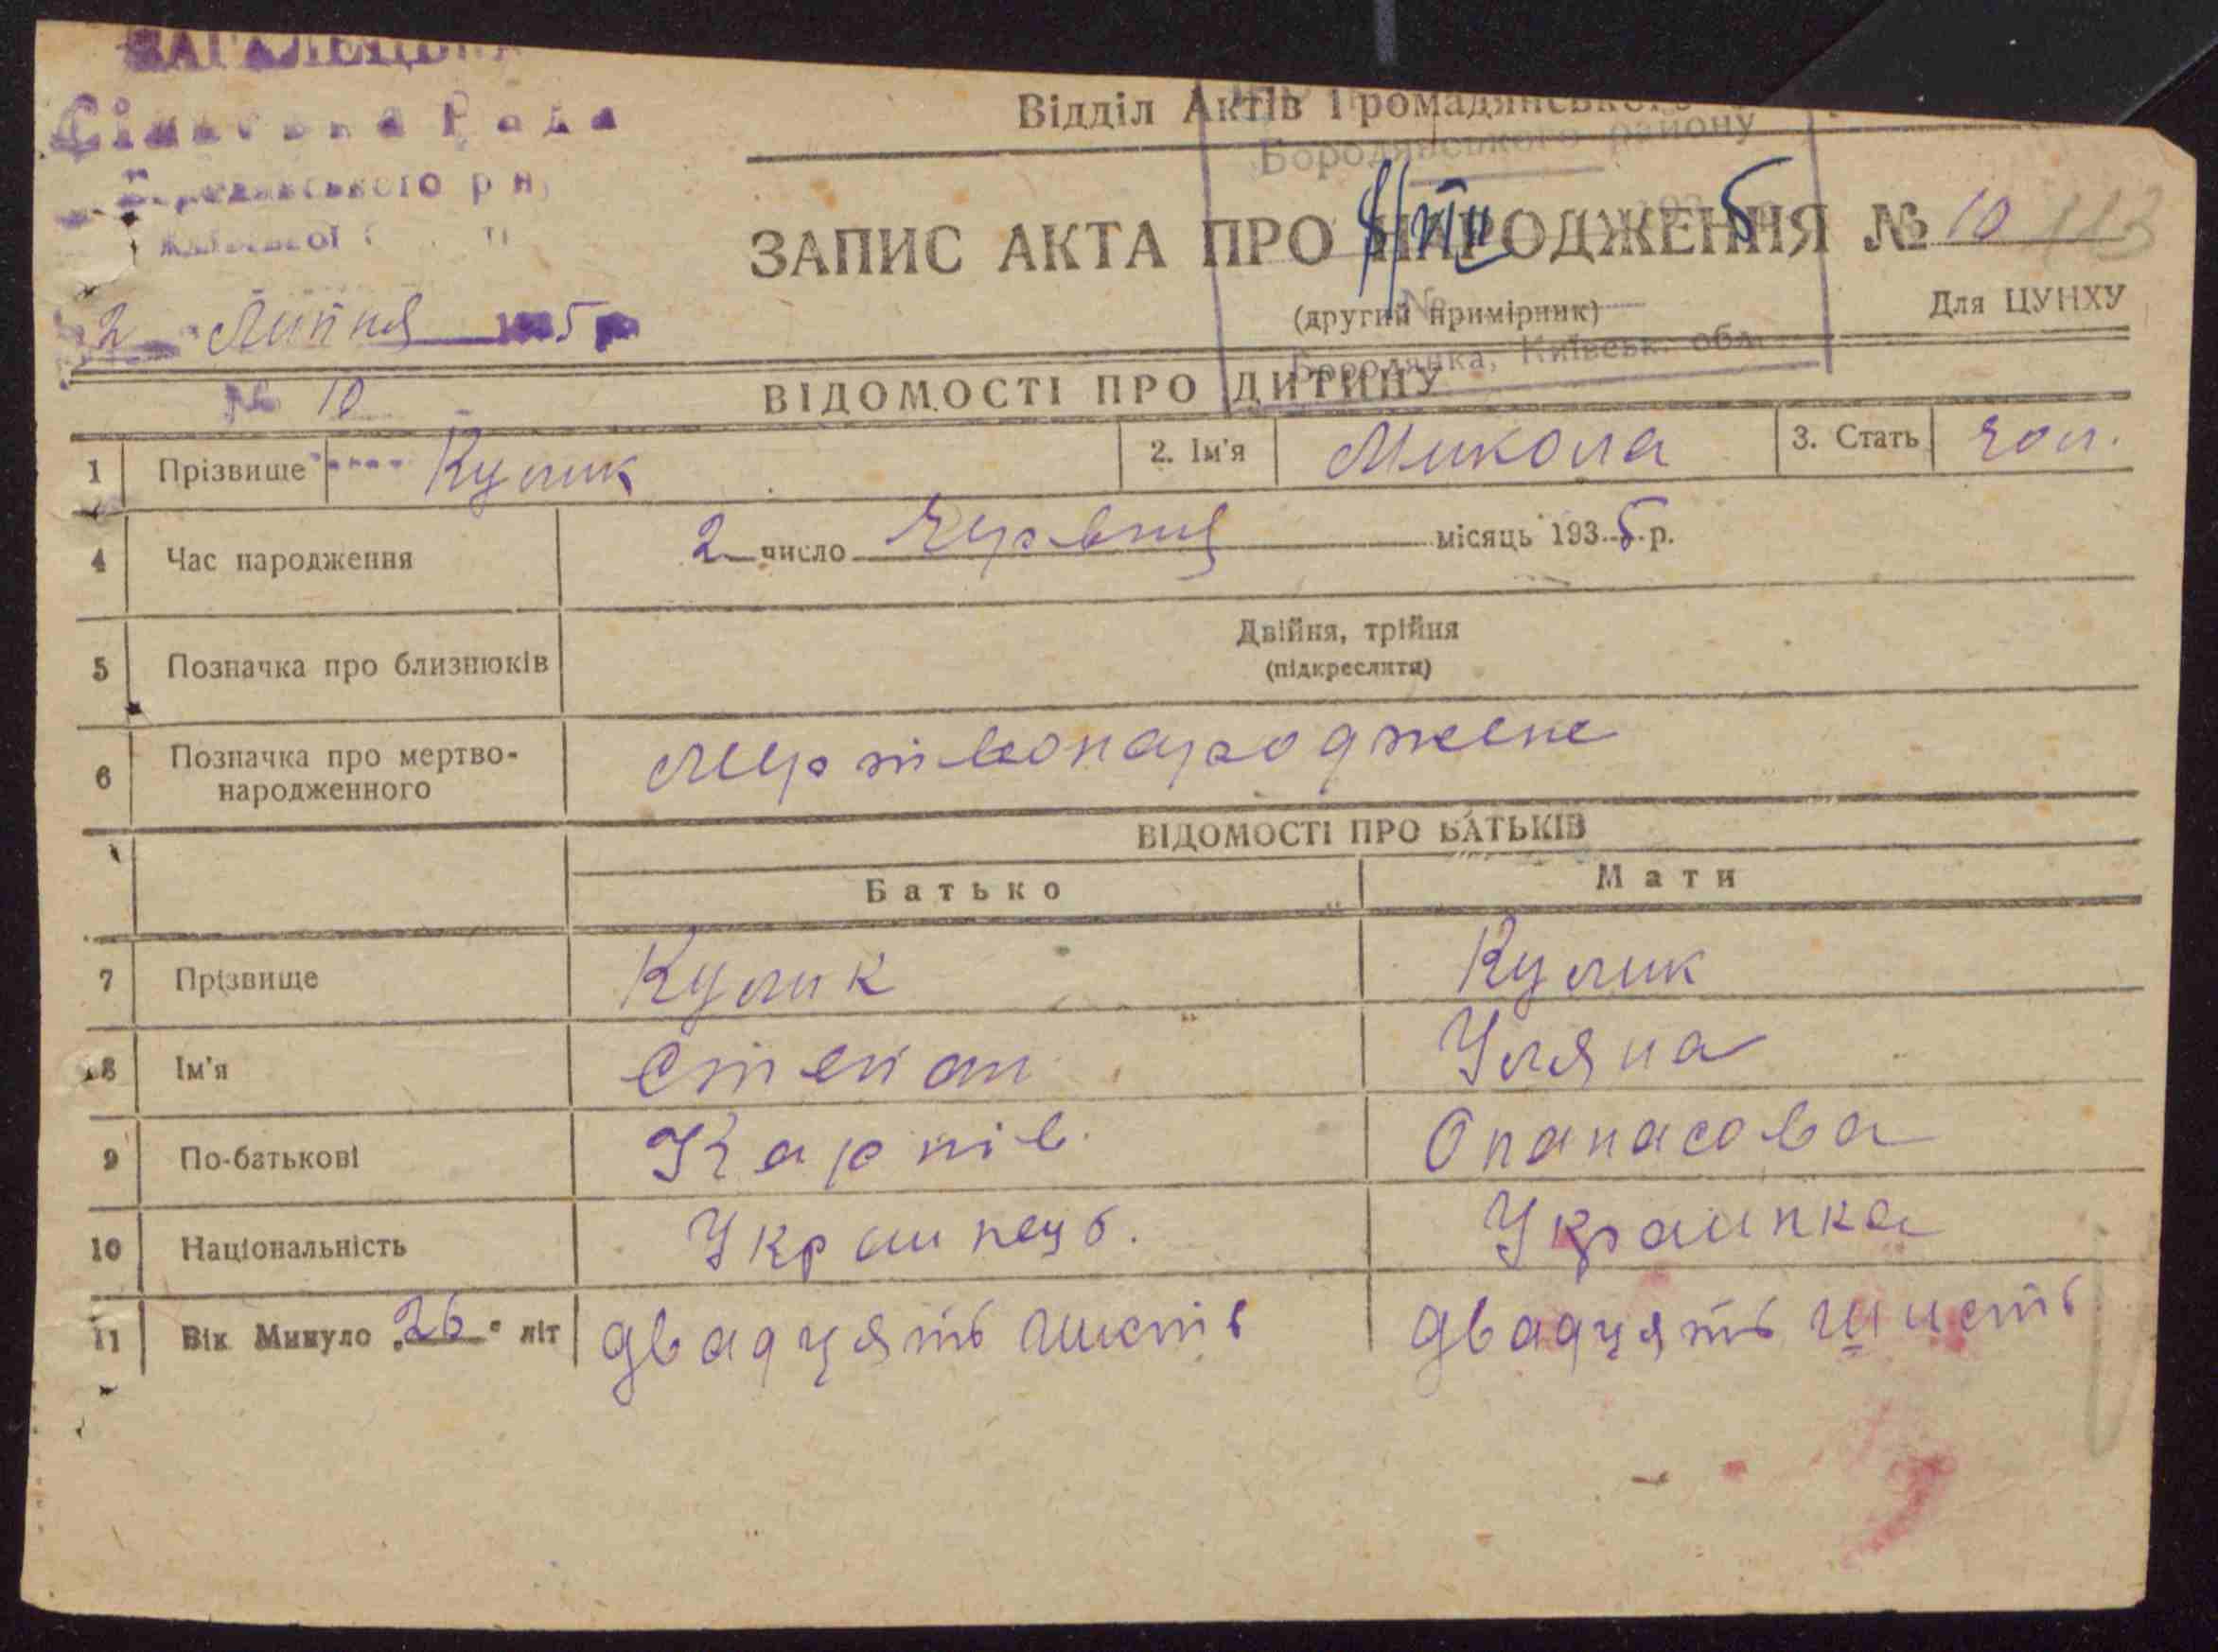 Сільська Рада
Відділ Актів Громадянського
Бородянського району
Бородянського р-н,
Київської
ЗАПИС АКТА ПРО НАРОДЖЕННЯ № 10 113
(другий примірник)
Для ЦУНХУ
2 Липня 1935 р
№ 10
Бородянка, Київськ. обл.
ВІДОМОСТІ ПРО ДИТИНУ
1 Прізвище Кулик 2. Ім'я Микола 3. Стать чол.
4 Час народження 2 число Червня місяць 1935 р.
5 Позначка про близнюків Двійня, трійня
(підкреслити)
6 Позначка про мертво-
народженного Мертвонароджене
ВІДОМОСТІ ПРО БАТЬКІВ
Батько Мати
7 Прізвище Кулик Кулик
8 Ім'я Степан Уляна
9 По-батькові Карпів. Опанасова
10 Національність Украинець. Украинка
11 Вік Минуло „26" літ двадцять шисть двадцять шисть